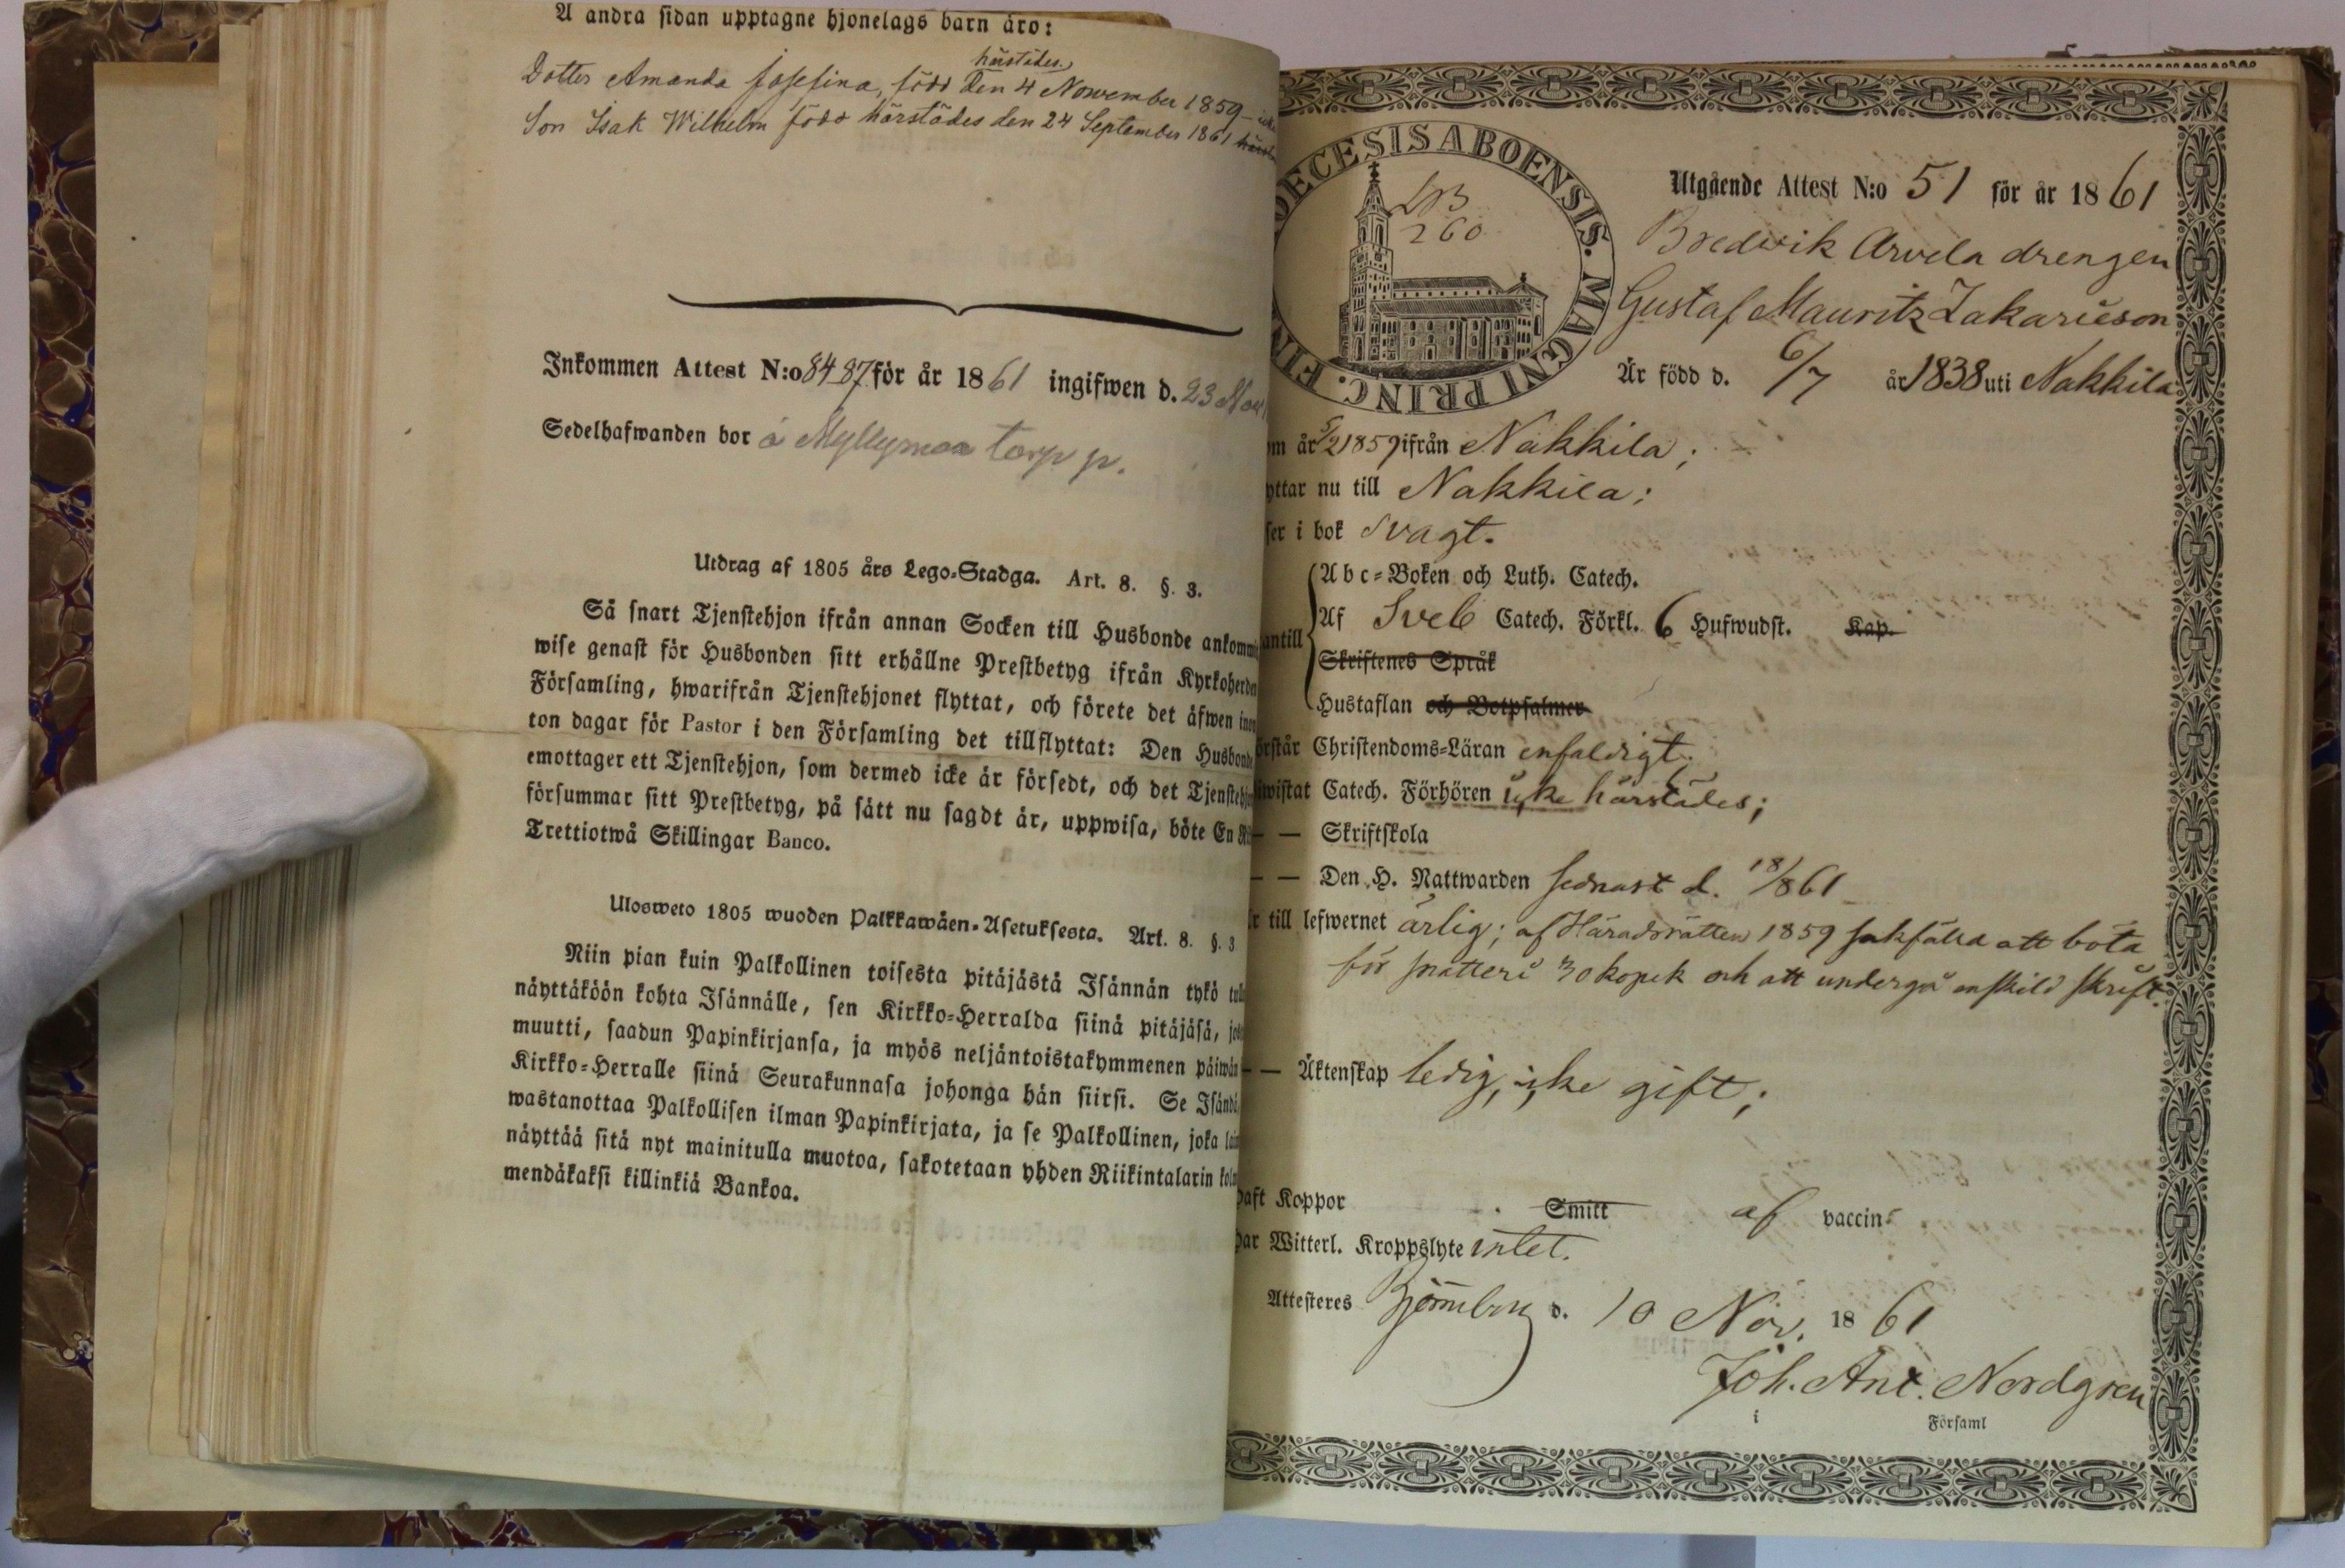 Å andra sidan upptagne hjonelags barn äro:
härstädes
Dotter Amanda Josefina, född den 4 November 1859
Son Isak Wilhelm född härstädes den 24 September 1861
Inkommen Attest N:o 84-87 för år 1861 ingifwen d. 23 Nov
Sedelhafwanden bor å Myllymaa torp
Utdrag af 1805 års Lego-Stadga. Art. 8. §. 3.
Så snart Tjenstehjon ifrån annan Socken till Husbonde ankommi
wise genast för Husbonden sitt erhållne Prestbetyg ifrån Kyrkoherden
Församling, hwarifrån Tjenstehjonet flyttat, och förete det äfwen inom
ton dagar för Pastor i den Församling det tillflyttat: Den Husbonde
emottager ett Tjenstehjon, som dermed icke är försedt, och det Tjenstehjon
försummar sitt Prestbetyg, på sätt nu sagdt är, uppwisa, böte En Ri
Trettiotwå Skillingar Banco.
Ulosweto 1805 wuoden Palkkawäen-Asetuksesta. Art. 8. §. 3
Niin pian kuin Palkollinen toisesta pitäjästä Isännän tykö tul
näyttäköön kohta Isännälle, sen Kirkko-Herralda siinä pitäjäsä, jo
muutti, saadun Papinkirjansa, ja myös neljäntoistakymmenen päiwän
Kirkko-Herralle siinä Seurakunnasa johonga hän siirsi. Se Isändä,
wastanottaa Palkollisen ilman Papinkirjata, ja se Palkollinen, joka
näyttää sitä nyt mainitulla muotoa, sakotetaan yhden Riikintalarin kol
mendäkaksi killinkiä Bankoa.
OECESIS ABOENSIS. MAGNI PRINC. FIN
260
Utgående Attest N:o 51 för år 1861
Bredvik Arvela drengen
Gustaf Mauritz Zakarieson
Är född d. 6/7 år 1838 uti Nakkila
om år 5/2 1859 ifrån Nakkila;
yttar nu till Nakkila;
ser i bok svagt.
Abc-Boken och Luth. Catech.
antill Af Sveb Catech. Förkl. 6 Hufwudst. Kap.
Skriftenes Språk
Hustaflan och Botpsalmer
örstår Christendoms-Läran enfaldigt;
wistat Catech. Förhören icke härstädes;
— — Skriftskola
— — Den H. Nattwarden sednast d. 18/8 61
r till lefwernet ärlig; af Häradsrätten 1859 sakfälld att böta
för snatteri 30 kopek och att undergå enskild skrift.
— — Äktenskap ledig, icke gift;
haft Koppor Smitt af vaccin
har Witterl. Kroppslyte intet.
Attesteres Björneborg d. 10 Nov. 1861
Joh. Ant. Nordgren
i Församl